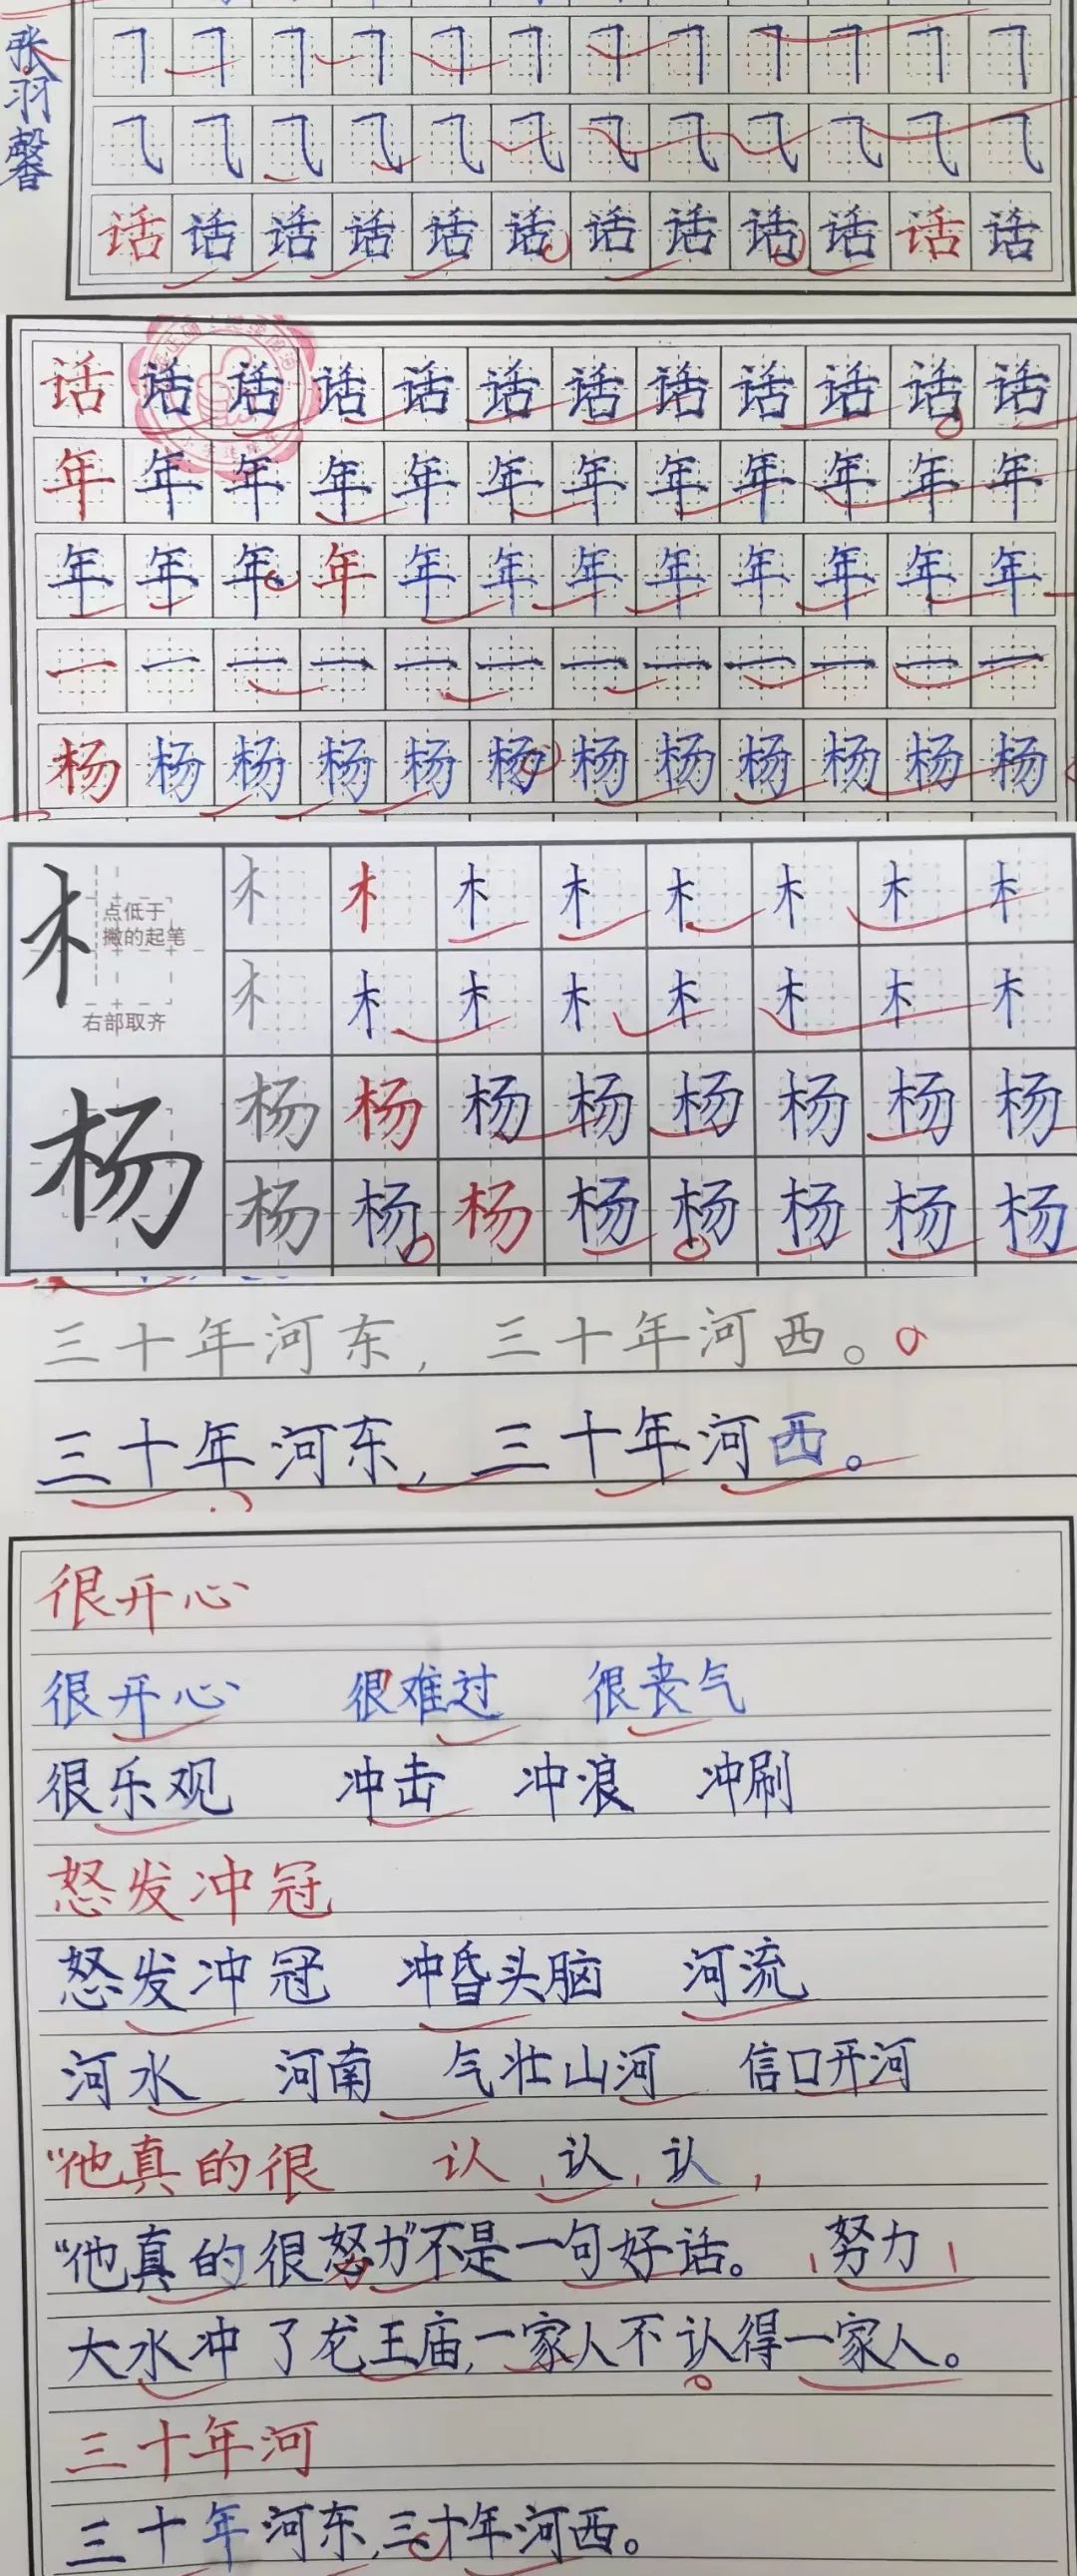 张羽馨
𠃌 𠃌 𠃌 𠃌 𠃌 𠃌 𠃌 𠃌 𠃌 𠃌 𠃌 𠃌
⺄ ⺄ ⺄ ⺄ ⺄ ⺄ ⺄ ⺄ ⺄ ⺄ ⺄ ⺄
话 话 话 话 话 话 话 话 话 话 话 话
话 话 话 话 话 话 话 话 话 话 话 话
年 年 年 年 年 年 年 年 年 年 年 年
年 年 年 年 年 年 年 年 年 年 年 年
一 一 一 一 一 一 一 一 一 一 一 一
杨 杨 杨 杨 杨 杨 杨 杨 杨 杨 杨 杨
木 木 木 木 木 木 木 木 木
点低于
撇的起笔
木 木 木 木 木 木 木 木
右部取齐
杨 杨 杨 杨 杨 杨 杨 杨 杨
杨 杨 杨 杨 杨 杨 杨 杨
三十年河东，三十年河西。
三十年河东，三十年河西。
很开心
很开心 很难过 很丧气
很乐观 冲击 冲浪 冲刷
怒发冲冠
怒发冲冠 冲昏头脑 河流
河水 河南 气壮山河 信口开河
“他真的很 认，认，认，
“他真的很怒力”不是一句好话。 努力
大水冲了龙王庙，一家人不认得一家人。
三十年河
三十年河东，三十年河西。